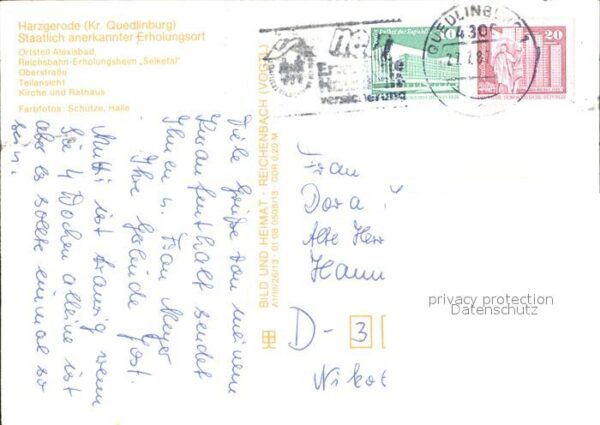 Harzgerode (Kr. Quedlinburg)
Staatlich anerkannter Erholungsort
Ortsteil Alexisbad,
Reichsbahn-Erholungsheim „Selketal"
Oberstraße
Teilansicht
Kirche und Rathaus
Farbfotos: Schütze, Halle
Viele Grüße von meinem
Kuraufenthalt sendet
Ihnen u. Frau Meyer
Ihre Gerlinde Post.
Mutti ist traurig wenn
sie 4 Wochen alleine ist
aber es sollte einmal so
sein.
BILD UND HEIMAT · REICHENBACH (VOGTL)
A1/III/26/13 · 01 08 0508/13 · DDR 0,20 M
versicherung
QUEDLINBURG 1
4300
20
Frau
Dora
Alte Herr
Hann
D - 3
Nikol
privacy protection
Datenschutz